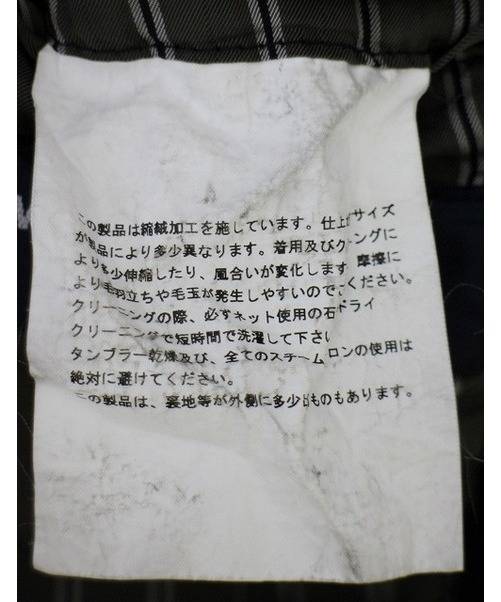 この製品は縮絨加工を施しています。仕上げサイズ
が製品により多少異なります。着用及びク ングに
より多少伸縮したり、風合いが変化します 摩擦に
より毛羽立ちや毛玉が発生しやすいので ください。
クリーニングの際、必ずネット使用の石 ドライ
クリーニングで短時間で洗濯して下さい
タンブラー乾燥及び、全てのスチーム ロンの使用は
絶対に避けてください。
この製品は、裏地等が外側に多少 ものもあります。